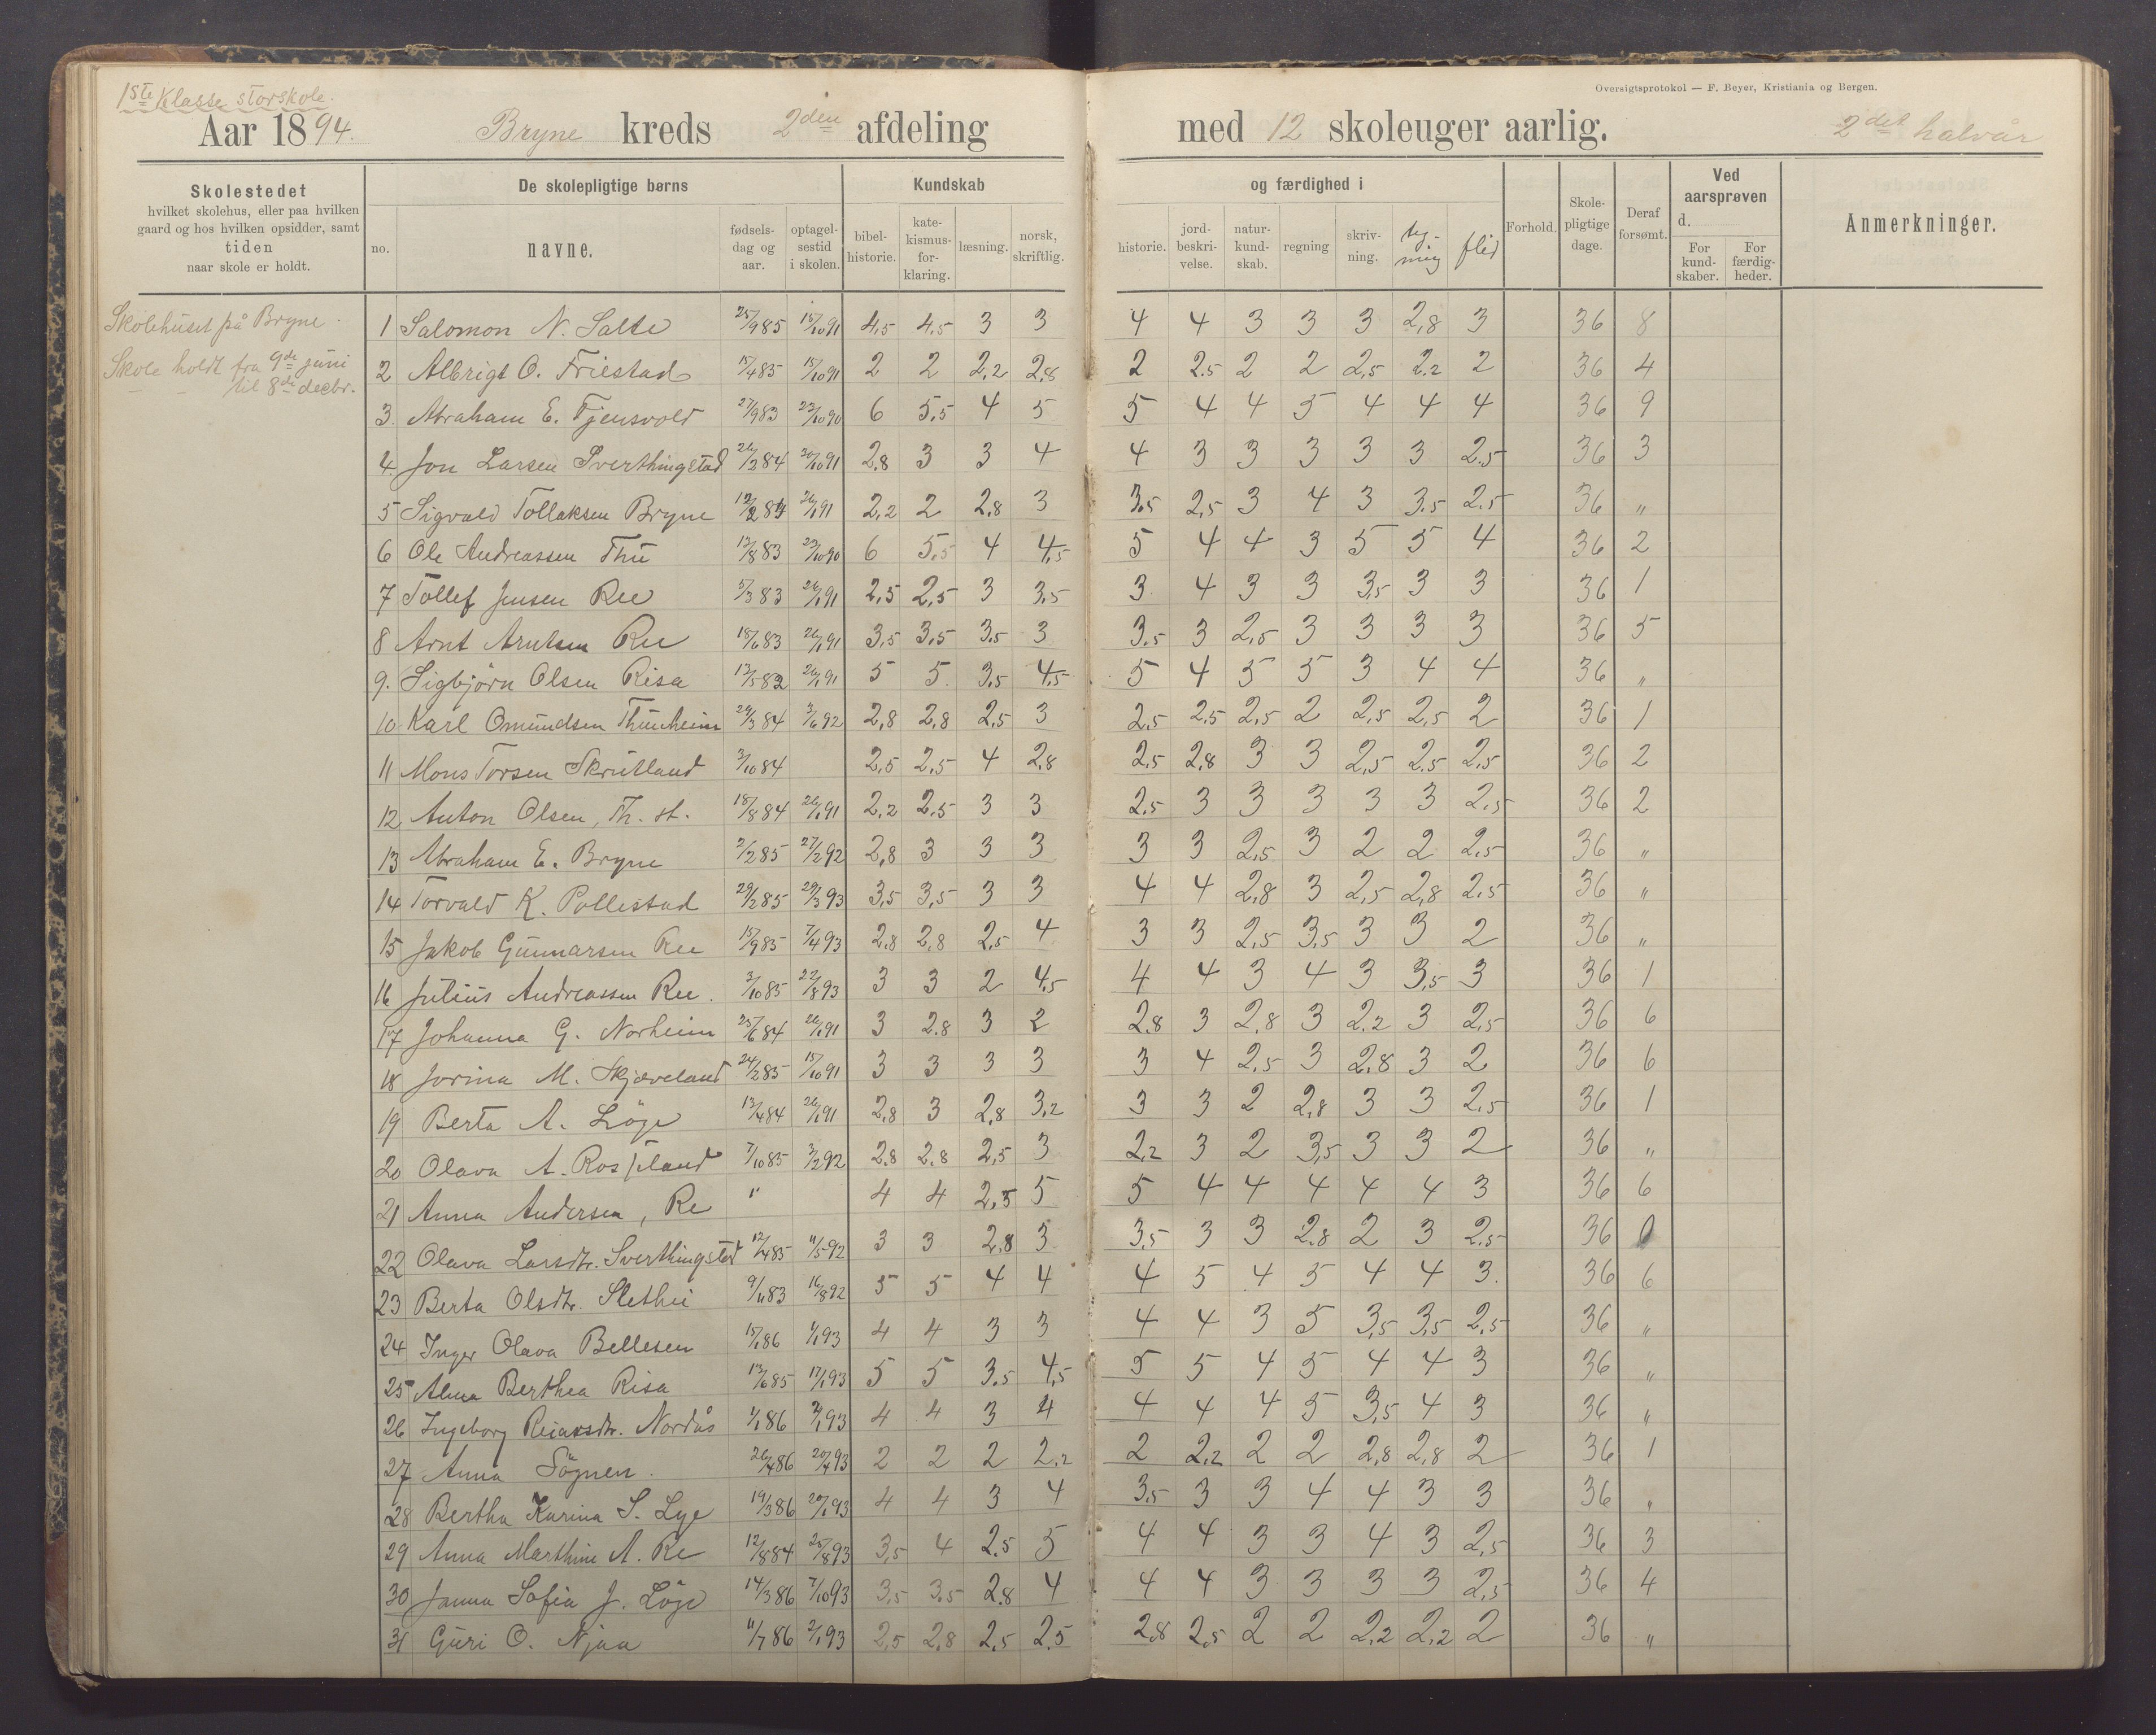 Oversigtsprotokol — F. Beyer, Kristiania og Bergen.
1ste Klasse storskole.
Aar 1894. Bryne kreds 2den afdeling med 12 skoleuger aarlig. 2det halvår
Skolestedet hvilket skolehus, eller paa hvilken gaard og hos hvilken opsidder, samt tiden naar skole er holdt.
De skolepligtige børns
no. navne. fødselsdag og aar. optagelsestid i skolen.
Kundskab og færdighed i
bibelhistorie. katekismusforklaring. læsning. norsk, skriftlig. historie. jordbeskrivelse. naturkundskab. regning skrivning. tegning flid
Forhold. Skolepligtige dage. Deraf forsømt. Ved aarsprøven d. For kundskaber. For færdigheder. Anmerkninger.
Skolehuset på Bryne.
Skole holdt fra 9de juni
" " til 8de decbr.
1 Salomon N. Salte 25/9 85 15/10 91 4,5 4,5 3 3 4 4 3 3 3 2,8 3 36 8
2 Albrigt O. Friestad 15/4 85 15/10 91 2 2 2,2 2,8 2 2.5 2 2 2,5 2.2 2 36 4
3. Abraham E. Tjensvold 27/9 83 23/10 90 6 5,5 4 5 5 4 4 5 4 4 4 36 9
4 Jon Larsen Sverthingstad 26/2 84 20/10 91 2.8 3 3 4 4 3 3 3 3 3 2.5 36 3
5 Sigvald Tollaksen Bryne 12/2 84 26/1 91 2,2 2 2.8 3 3.5 2,5 3 4 3 3.5 2.5 36 "
6 Ole Andreassen Thu 12/8 83 23/10 90 6 5.5 4 4,5 5 4 4 3 5 5 4 36 2
7 Tollef Jensen Ree 5/3 83 26/1 91 2,5 2,5 3 3.5 3 4 3 3 3,5 3 3 36 1
8 Arnt Arntsen Ree 18/6 83 26/1 91 3,5 3,5 3,5 3 3.5 3 2,5 3 3 3 3 36 5
9. Sigbjörn Olsen Risa 13/5 82 26/1 91 5 5 3,5 4.5 5 4 5 5 3 4 4 36 "
10 Karl Omundsen Thunheim 29/3 84 3/6 92 2,8 2,8 2,5 3 2,5 2,5 2,5 2 2,5 2,5 2 36 1
11 Mons Torsen Skrutland 3/10 84 2,5 2,5 4 2.8 2.5 2,8 3 3 2,5 2.5 2,5 36 2
12 Anton Olsen, Th. st. 18/8 84 26/1 91 2,2 2,5 3 3 2.5 3 3 3 3 3 2.5 36 2
13 Abraham E. Bryne 2/2 85 27/2 92 2,8 3 3 3 3 3 2,5 3 2 2 2,5 36 "
14 Torvald K. Pollestad 29/2 85 29/3 93 3,5 3,5 3 3 4 4 2,8 3 2,5 2,8 2.5 36 "
15 Jakob Gunnarsen Ree 15/9 85 7/4 93 2,8 2,8 2,5 4 3 3 2,5 3,5 3 3 2 36 "
16 Julius Andreassen Ree. 3/10 85 22/8 93 3 3 2 4,5 4 4 3 4 3 3,5 3 36 1
17 Johanna G. Norheim 25/6 84 26/1 91 3 2.8 3 2 2.8 3 2,8 3 2,2 3 2,5 36 6
18 Jorina M. Skjæveland 24/2 85 15/10 91 3 3 3 3 3 4 2,5 3 2,8 3 2 36 6
19 Berta A. Löge 13/4 84 26/1 91 2,8 3 2,8 3,2 3 3 2 2,8 3 3 2.5 36 1
20 Olava A. Rosseland 7/10 85 3/2 92 2.8 2.8 2,5 3 2,2 3 2 3,5 3 3 2 36 "
21 Anna Andersen, Re " 4 4 2,5 5 5 4 4 4 4 4 3 36 6
22 Olava Larsdtr. Sverthingstad 12/4 85 11/5 92 3 3 2,8 3 3,5 3 3 2.8 2 3 2,5 36 0
23 Berta Olsdtr. Slethei 9/11 83 16/8 92 5 5 4 4 4 5 4 5 4 4 3. 36 6
24 Inger Olava Bellesen 15/1 86 1/1 93 4 4 3 3 4 4 3 5 3,5 3,5 2.5 36 "
25 Alma Berthea Risa 13/6 85 17/1 93 5 5 3.5 4,5 5 5 4 5 4 4 3 36 "
26 Ingeborg Reiarsdtr. Nordås 1/1 86 2/1 93 4 4 3 4 4 4 4 5 3,5 4 3 36 "
27 Anna Sögnen. 26/4 86 20/4 93 2 2 2 2,2 2 2,2 2 2 2,8 2,8 2 36 1
28 Bertha Karina S. Lye 19/3 86 20/1 93 4 4 3 4 3.5 3 3 4 4 3 3 36 "
29 Anna Marthine A. Re 12/8 84 25/8 93 3,5 4 2.5 5 4 4 3 3 4 3 2,5 36 3
30 Janna Sofia J. Löge 14/3 86 7/10 93 3,5 3.5 2.8 4 4 4 3 3 3 3 2,5 36 4
31 Guri O. Njaa 11/7 86 2/1 93 2,5 2,8 2,5 2.5 2.8 2,5 2 2 2,2 2,2 2 36 "